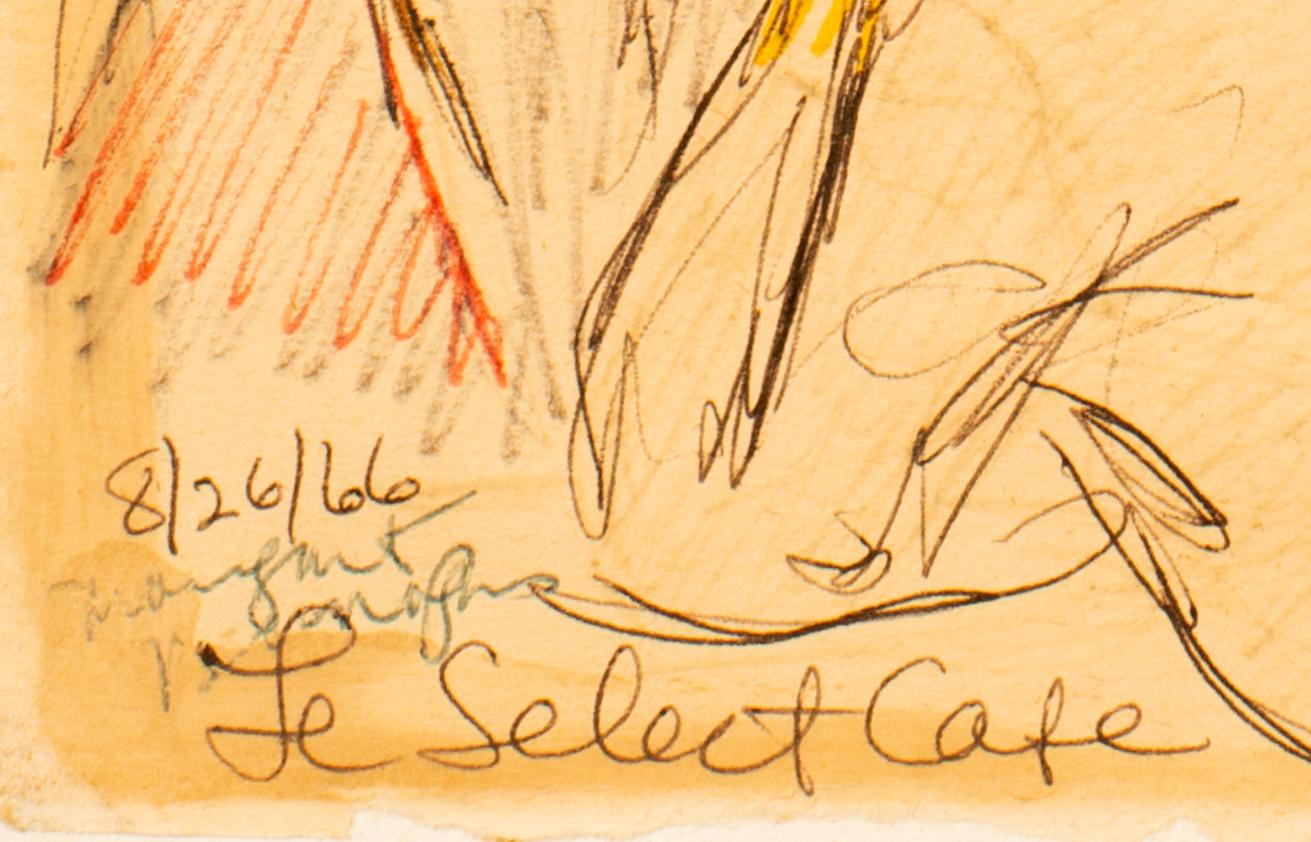 8/26/66
Margaret
Le Select Cafe